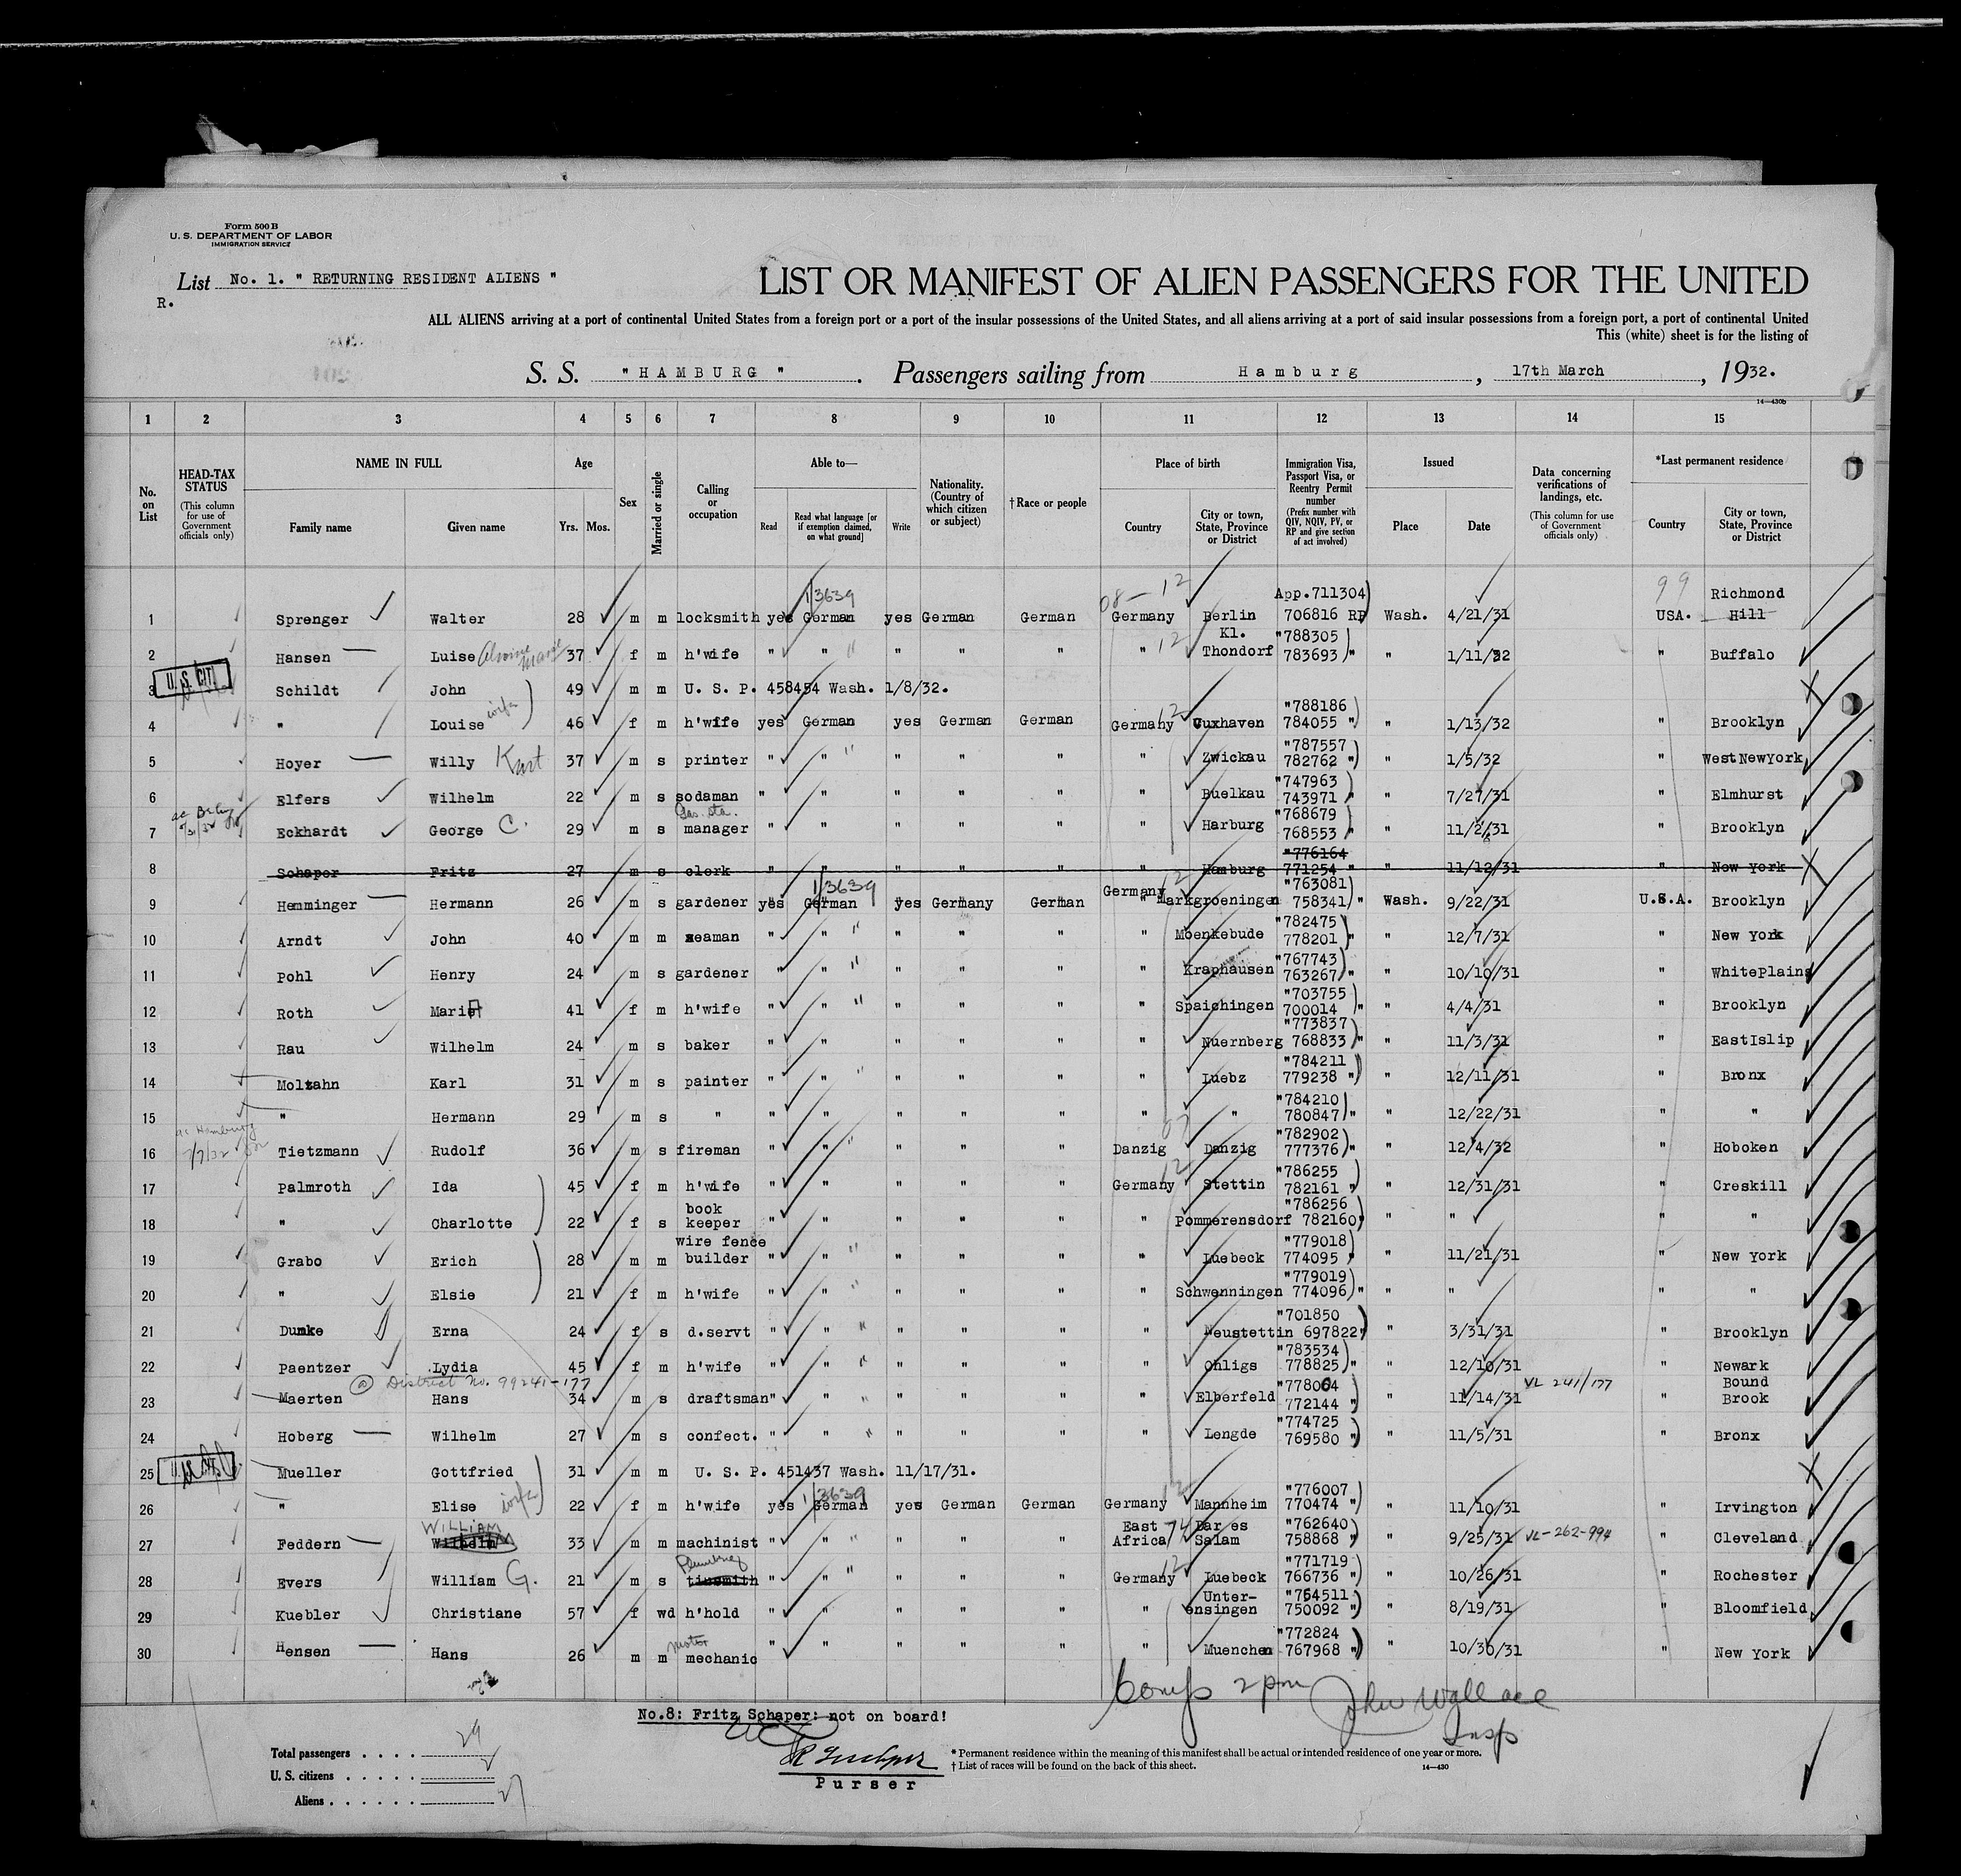 Form 500 B
U. S. DEPARTMENT OF LABOR
IMMIGRATION SERVICE
List No. 1. " RETURNING RESIDENT ALIENS "
R.
LIST OR MANIFEST OF ALIEN PASSENGERS FOR THE UNITED
ALL ALIENS arriving at a port of continental United States from a foreign port or a port of the insular possessions of the United States, and all aliens arriving at a port of said insular possessions from a foreign port, a port of continental United
This (white) sheet is for the listing of
S. S. " HAMBURG " . Passengers sailing from Hamburg , 17th March , 1932.
14—430B
1 2 3 4 5 6 7 8 9 10 11 12 13 14 15
No. on List
HEAD-TAX STATUS (This column for use of Government officials only)
NAME IN FULL Family name Given name
Age Yrs. Mos.
Sex
Married or single
Calling or occupation
Able to— Read Read what language [or if exemption claimed, on what ground] Write
Nationality. (Country of which citizen or subject)
† Race or people
Place of birth Country City or town, State, Province or District
Immigration Visa, Passport Visa, or Reentry Permit number (Prefix number with QIV, NQIV, PV, or RP and give section of act involved)
Issued Place Date
Data concerning verifications of landings, etc. (This column for use of Government officials only)
*Last permanent residence Country City or town, State, Province or District
1/3639 08— 12 App.711304) 99 Richmond
1 Sprenger Walter 28 m m locksmith yes German yes German German Germany Berlin 706816 RP Wash. 4/21/31 USA. Hill
2 Hansen Luise 37 f m h'wife " " " " " " 12 Kl. Thondorf "788305 783693 " " 1/11/32 " Buffalo
U. S. CIT.
3 Schildt John 49 m m U. S. P. 458454 Wash. 1/8/32.
4 " Louise wife 46 f m h'wife yes German yes German German Germany 12 Cuxhaven "788186 784055 " " 1/13/32 " Brooklyn
5 Hoyer Willy Kurt 37 m s printer " " " " " " Zwickau "787557 782762 " " 1/5/32 " WestNewYork
6 Elfers Wilhelm 22 m s sodaman " " " " " " Buelkau "747963 743971 " " 7/27/31 " Elmhurst
7 Eckhardt George C. 29 m s Gas. sta. manager " " " " " " Harburg "768679 768553 " " 11/2/31 " Brooklyn
8 Schaper Fritz 27 m s clerk " " " " " " Hamburg "776164 771254 " " 11/12/31 " New York
9 Hemminger Hermann 26 m s gardener yes 1/3639 German yes Germany German Germany 12 Markgroeningen "763081 758341 " Wash. 9/22/31 U.S.A. Brooklyn
10 Arndt John 40 m m seaman " " " " " " Moenkebude "782475 778201 " " 12/7/31 " New York
11 Pohl Henry 24 m s gardener " " " " " " Kraphausen "767743 763267 " " 10/10/31 " WhitePlains
12 Roth Marie 41 f m h'wife " " " " " " Spaichingen "703755 700014 " " 4/4/31 " Brooklyn
13 Rau Wilhelm 24 m s baker " " " " " " Nuernberg "773837 768833 " " 11/3/31 " EastIslip
14 Moltzahn Karl 31 m s painter " " " " " " Luebz "784211 779238 " " 12/11/31 " Bronx
15 " Hermann 29 m s " " " " " " " " "784210 780847 " " 12/22/31 " "
16 Tietzmann Rudolf 36 m s fireman " " " " " Danzig Danzig "782902 777376 " " 12/4/32 " Hoboken
17 Palmroth Ida 45 f m h'wife " " " " " Germany 12 Stettin "786255 782161 " " 12/31/31 " Creskill
18 " Charlotte 22 f s book keeper " " " " " " Pommerensdorf "786256 782160 " " " " "
19 Grabo Erich 28 m m wire fence builder " " " " " " Luebeck "779018 774095 " " 11/21/31 " New York
20 " Elsie 21 f m h'wife " " " " " " Schwenningen "779019 774096 " " " " "
21 Dumke Erna 24 f s d.servt " " " " " " Neustettin "701850 697822 " " 3/31/31 " Brooklyn
22 Paentzer Lydia 45 f m h'wife " " " " " " Ohligs "783534 778825 " " 12/10/31 " Newark
District No. 99241-177
23 Maerten Hans 34 m s draftsman " " " " " " Elberfeld "778064 772144 " " 11/14/31 VL 241/177 " Bound Brook
24 Hoberg Wilhelm 27 m s confect. " " " " " " Lengde "774725 769580 " " 11/5/31 " Bronx
25 Mueller Gottfried 31 m m U. S. P. 451437 Wash. 11/17/31.
26 " Elise wife 22 f m h'wife yes 1/3639 German yes German German Germany 12 Mannheim "776007 770474 " " 11/10/31 " Irvington
27 Feddern Wilhelm WILLIAM 33 m m machinist " " " " " East Africa 74 Dar es Salam "762640 758868 " " 9/25/31 VL-262-994 " Cleveland
28 Evers William G. 21 m s tinsmith " " " " " Germany 12 Luebeck "771719 766736 " " 10/26/31 " Rochester
29 Kuebler Christiane 57 f wd h'hold " " " " " " Unter- ensingen "764511 750092 " " 8/19/31 " Bloomfield
30 Hensen Hans 26 m m motor mechanic " " " " " " Muenchen "772824 767968 " " 10/30/31 " New York
Comp 2 pm John Wallace
Insp
No.8: Fritz Schaper: not on board!
Total passengers . . . . 29
U. S. citizens . . . . . 2
Aliens . . . . . . 27
Purser
* Permanent residence within the meaning of this manifest shall be actual or intended residence of one year or more.
† List of races will be found on the back of this sheet.
14—430